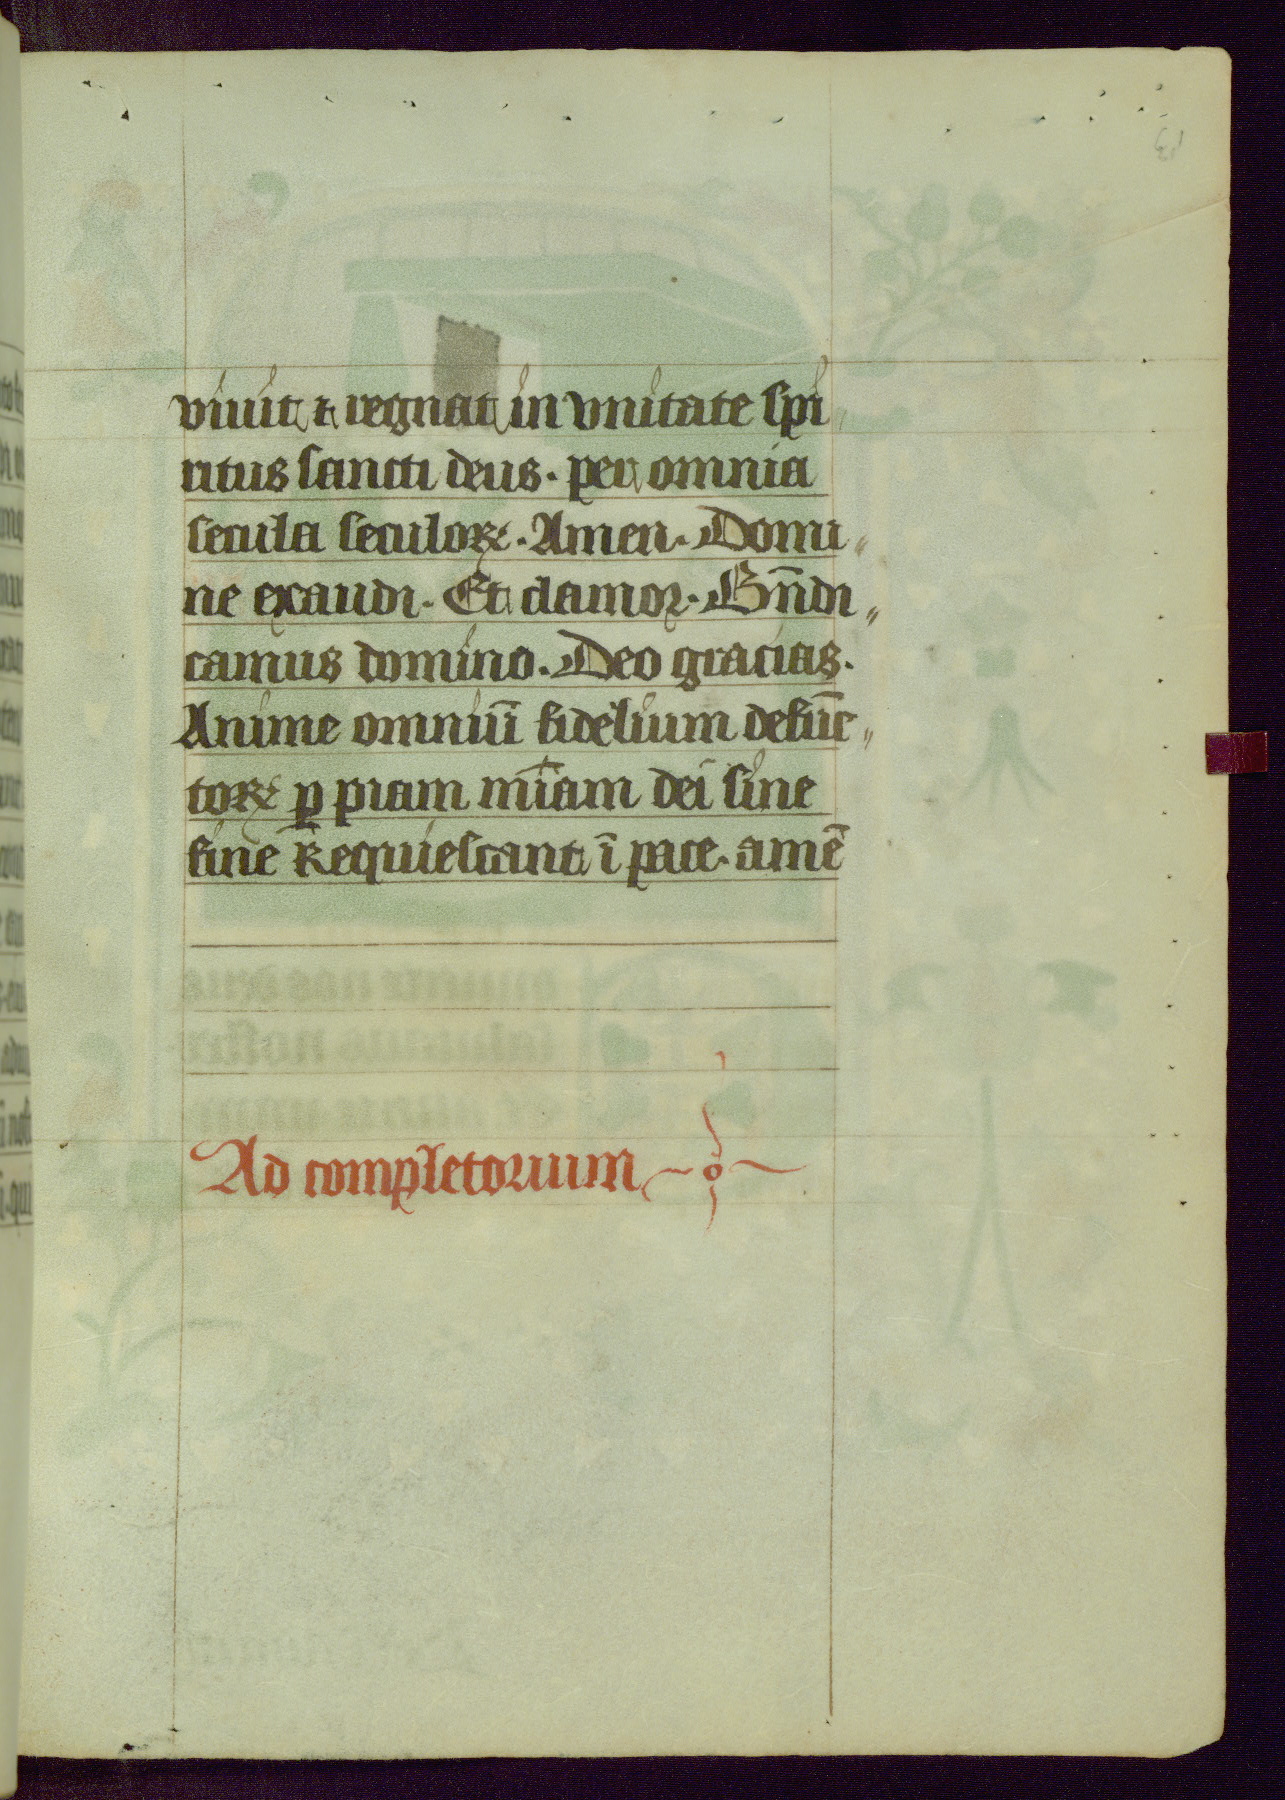 viuit ⁊ regnat in vnitate spi
ritus sancti deus. per omnia
secula seculoꝝ. Amen. Domi„
ne exaudi. Et clamor. Bn̄di„
camus domino. Deo gracias.
Anime omniū fidelium defūc„
toꝝ ꝑ piam mīam dei sine
fine Requiescant ī pace. amē
Ad completorium